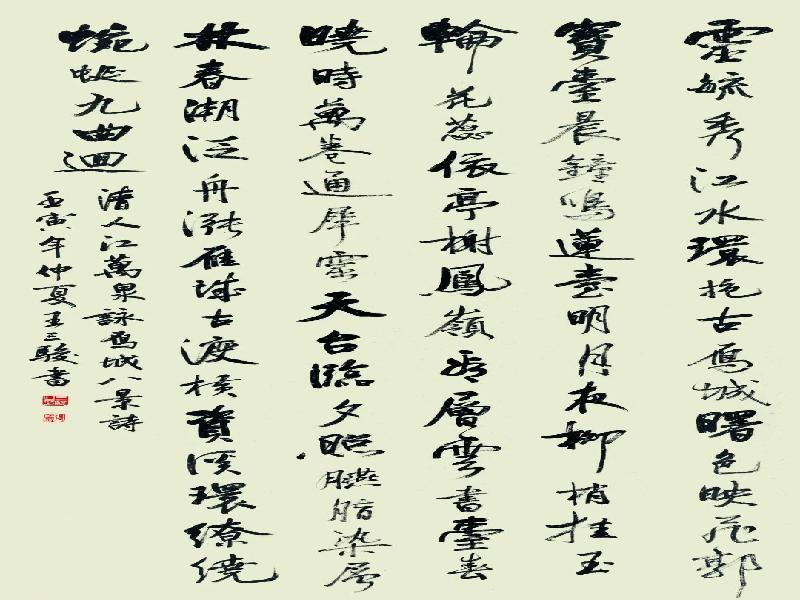 靈毓秀江水環抱古烏城曙色映花郭
寶臺晨鐘鳴蓮臺明月夜柳梢挂玉
輪花蕊依亭榭鳳嶺看層雲書臺春
曉時萬卷通犀靈天台臨夕照臙脂染層
林春湖泛舟漲雁球古渡橫資溪環繚繞
蜿蜒九曲迴
清人江萬泉詠烏城八景詩
壬寅年仲夏王三駿書